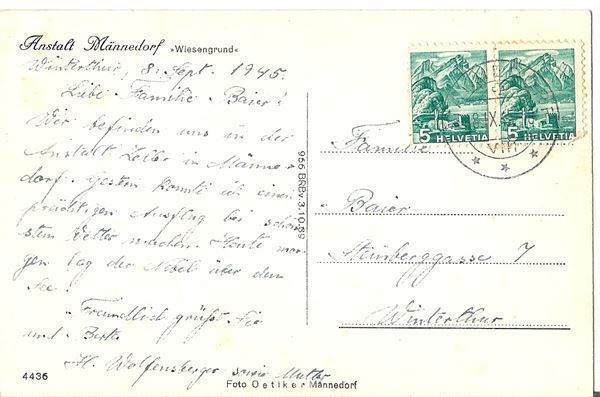 Anstalt Männedorf »Wiesengrund«
Winterthur, 8. Sept. 1945.
Liebe Familie Baier!
Wir befinden uns in der
Anstalt Zeller in Männe-
dorf. Gestern konnte ich einen
prächtigen Ausflug bei schön-
stem Wetter machen. Heute mor-
gen lag der Nebel über dem
See!
Freundlich grüsst Sie
und
H. Wolfensberger sowie Mutter
4436
Foto Oetiker Männedorf
956 BRB v. 3.10.39
5 HELVETIA
5 HELVETIA
Familie
Baier
Steinberggasse 7
Winterthur